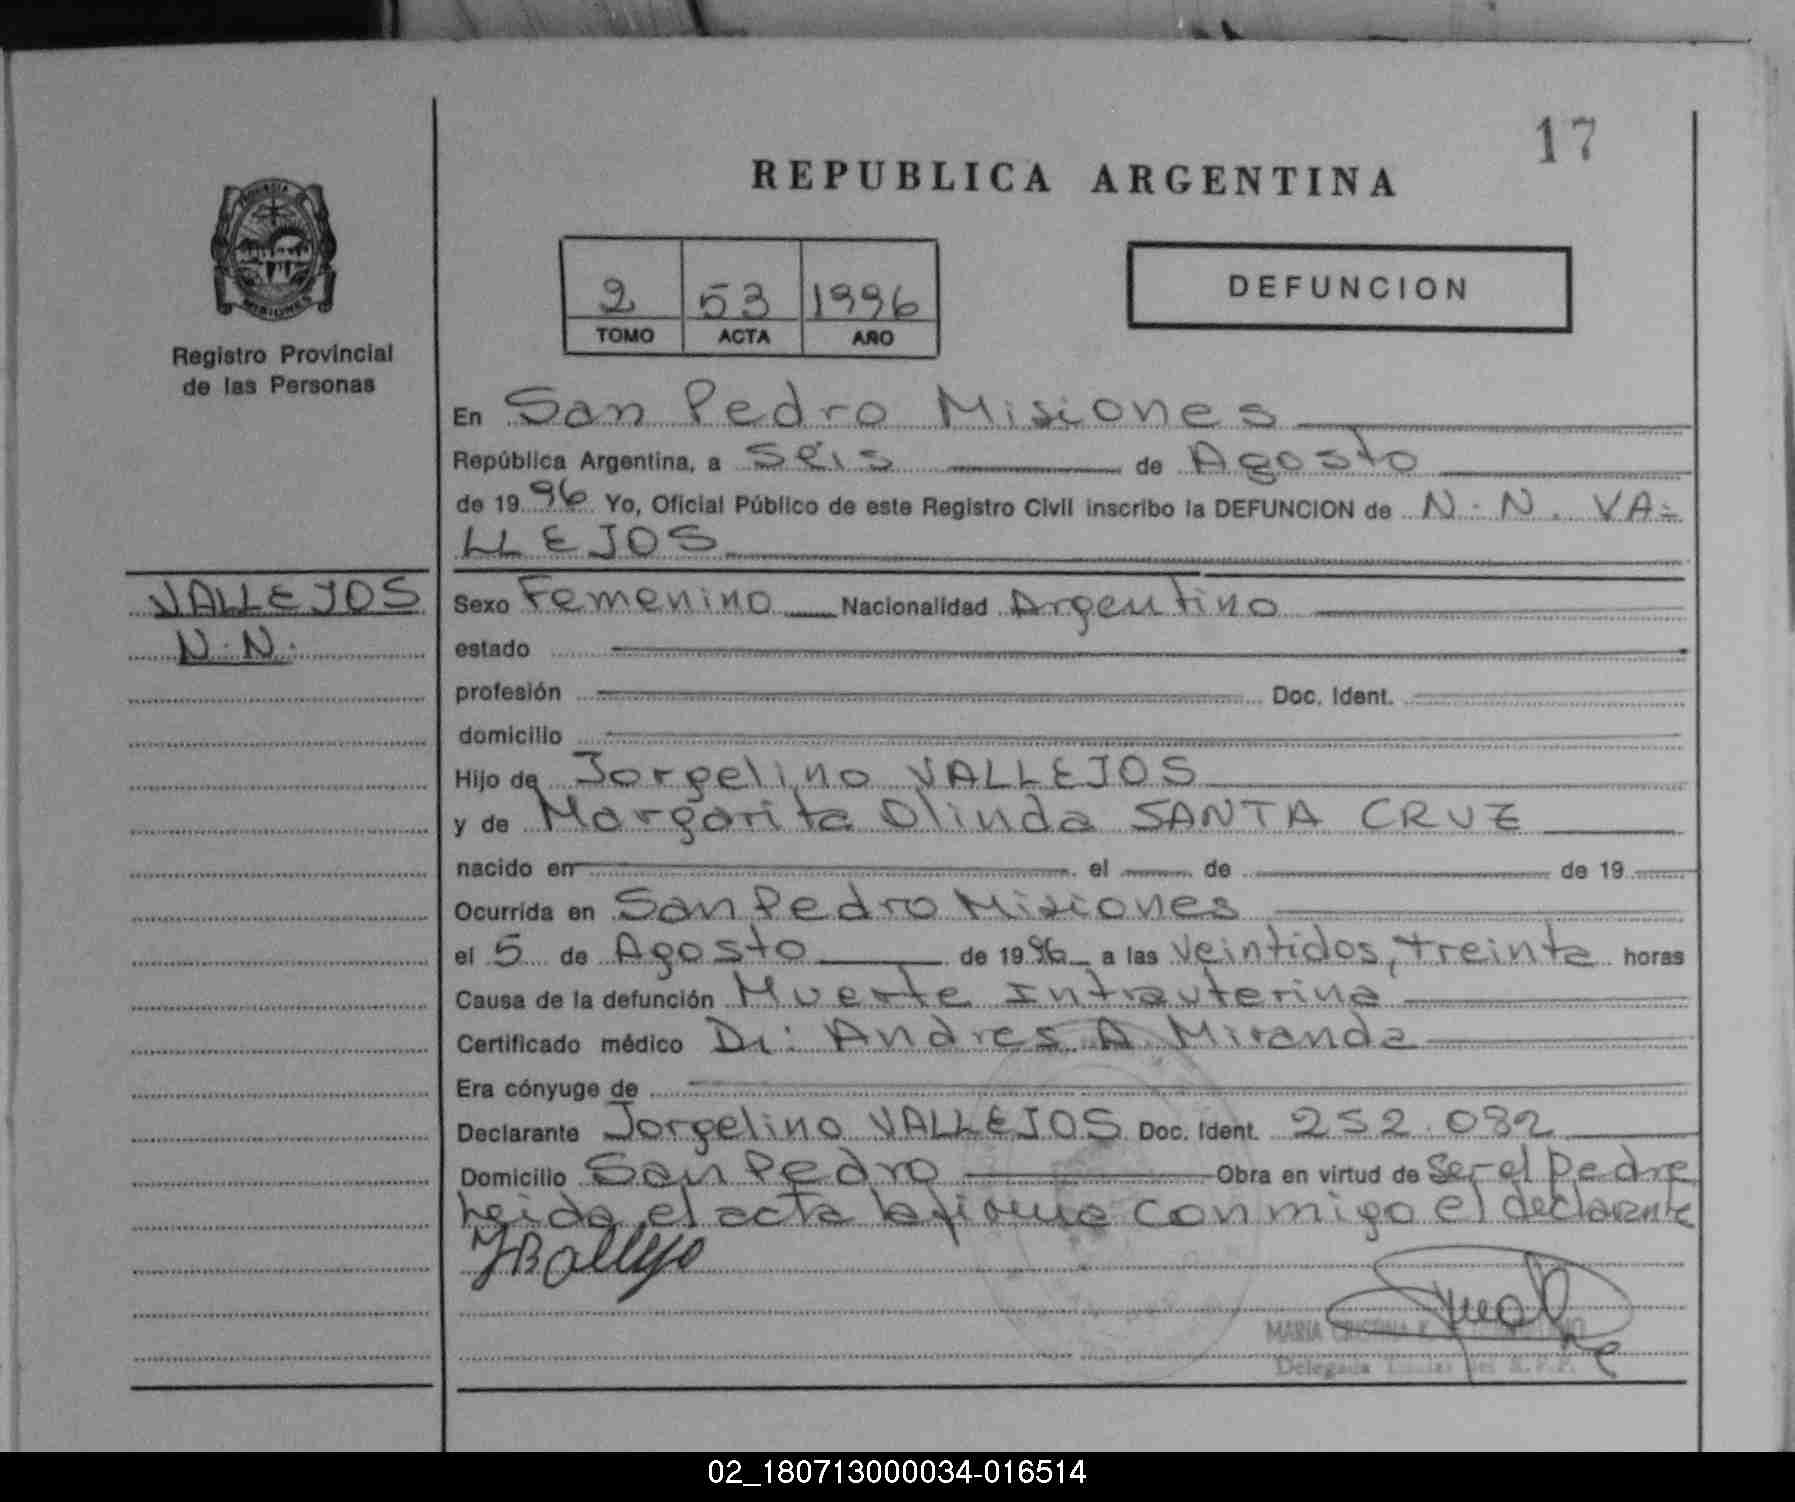 17
REPUBLICA ARGENTINA
MISIONES
Registro Provincial
de las Personas
2 53 1996
TOMO ACTA AÑO
DEFUNCION
En San Pedro Misiones
República Argentina, a Seis de Agosto
de 19 96 Yo, Oficial Público de este Registro Civil inscribo la DEFUNCION de N.N. VA=
LLEJOS
VALLEJOS
N.N.
Sexo Femenino Nacionalidad Argentino
estado
profesión Doc. Ident.
domicilio
Hijo de Jorgelino VALLEJOS
y de Margarita Olinda SANTA CRUZ
nacido en el de de 19
Ocurrida en San Pedro Misiones
el 5 de Agosto de 19 96 a las Veintidos, treinta horas
Causa de la defunción Muerte Intrauterina
Certificado médico Dr: Andres A. Miranda
Era cónyuge de
Declarante Jorgelino VALLEJOS Doc. Ident. 252.082
Domicilio San Pedro Obra en virtud de Ser el Padre
Leida el acta la firma conmigo el declarante
MARIA CRISTINA
Delegada Titular del R.P.P.
02_180713000034-016514